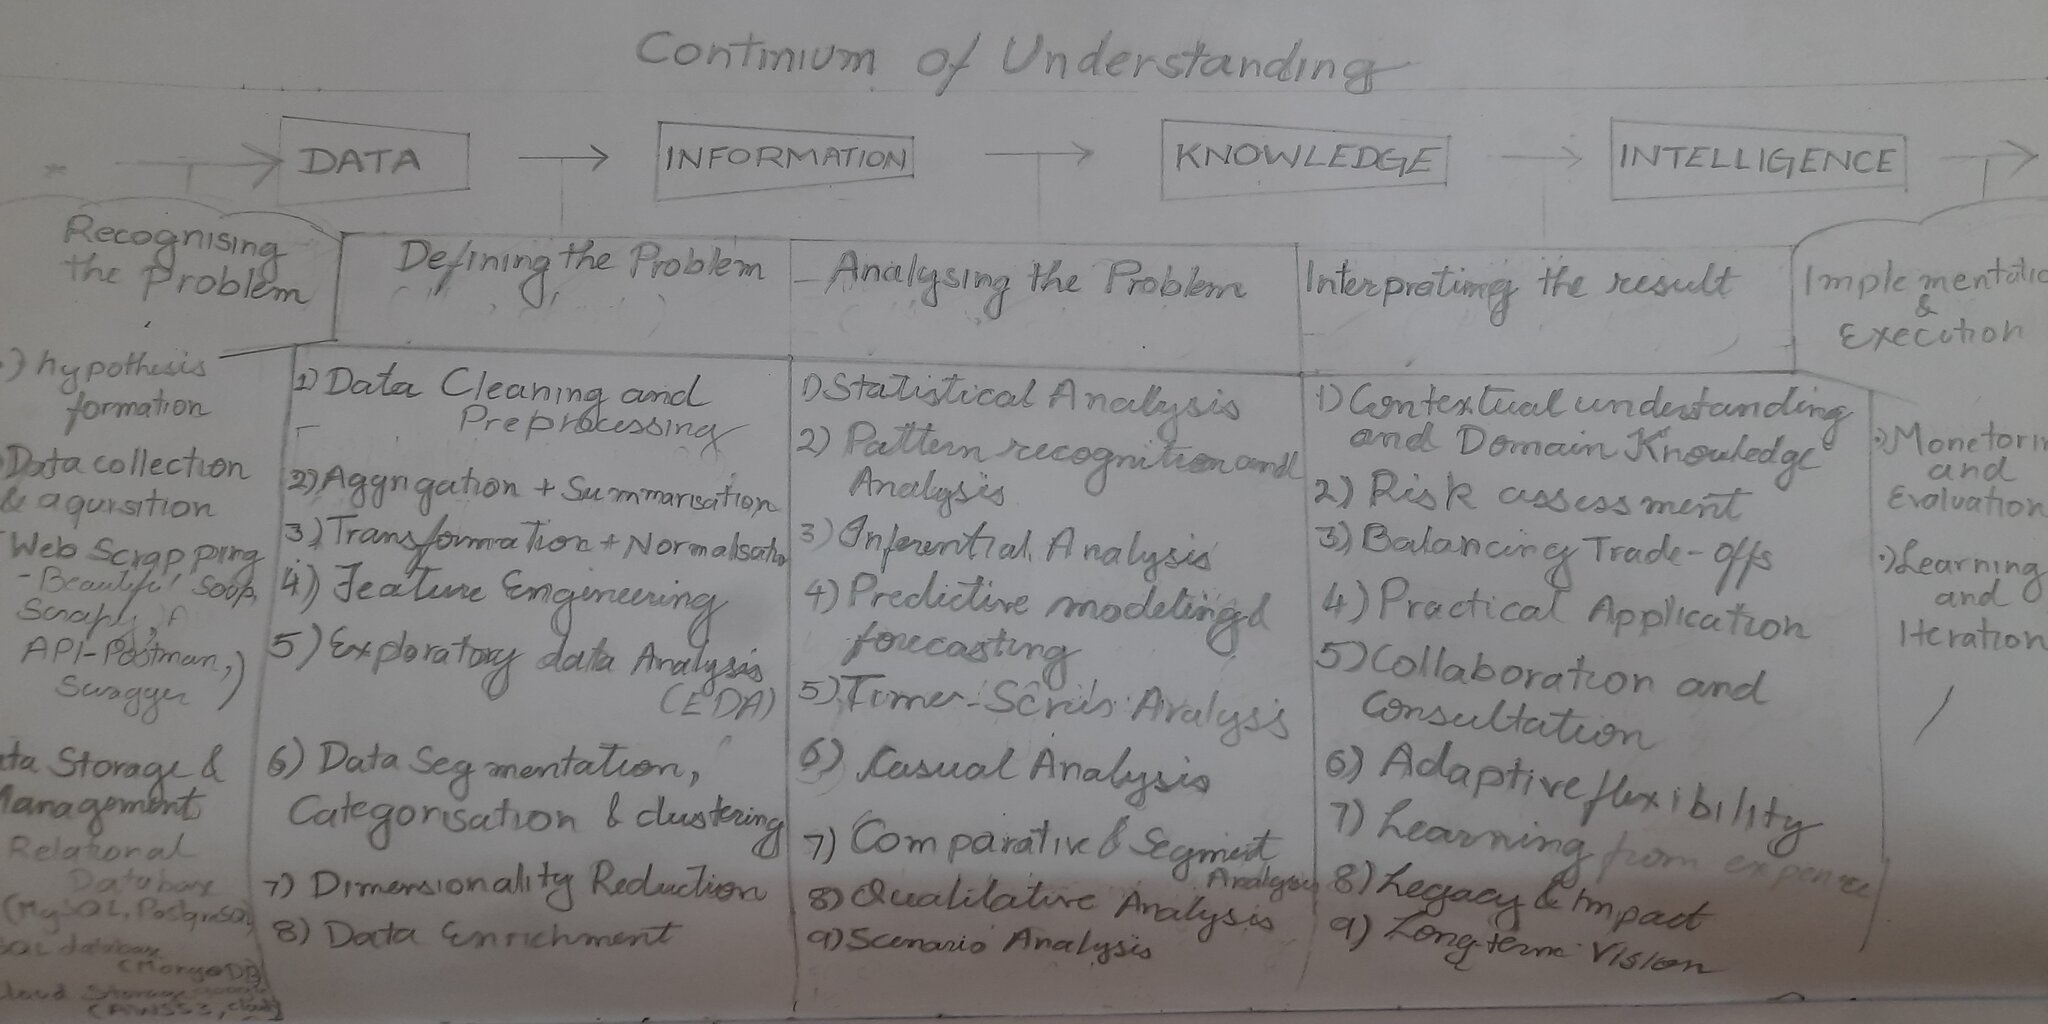 Continium of Understanding
DATA
INFORMATION
KNOWLEDGE
INTELLIGENCE
Recognising
the Problem
) hypothesis
formation
Data collection
& aqursition
Web Scrapping
- Beautiful Soup,
API-Postman,
Swagger )
Storage &
Management
Relational
Database
(MySQL, PostgreSQL
database
(MongoDB)
Storage
(AWSS3, cloud
Defining the Problem
1) Data Cleaning and
Preprocessing
2) Aggrigation + Summarisation
3) Transformation + Normalisation
4) Feature Engineering
5) Exploratory data Analysis
(EDA)
6) Data Segmentation,
Categorisation & clustering
7) Dimensionality Reduction
8) Data Enrichment
Analysing the Problem
1) Statistical Analysis
2) Pattern recognition and
Analysis
3) Inferential Analysis
4) Predictive modeling &
forecasting
5) Timer-Series Analysis
6) Casual Analysis
7) Comparative & Segment
Analysis
8) Qualitative Analysis
9) Scenario Analysis
Interprating the result
1) Contextual understanding
and Domain Knowledge
2) Risk assessment
3) Balancing Trade-offs
4) Practical Application
5) Collaboration and
Consultation
6) Adaptive flexibility
7) Learning from
8) Legacy & Impact
9) Long term Vision
Implementatio
&
Execution
Monetorin
and
Evaluation
Learning
and
Iteration